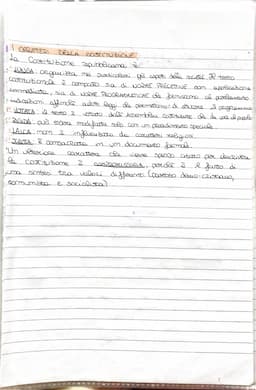 I CARATTERI DELLA COSTITUZIONE
La Costituzione repubblicana è:
• LUNGA: organizza nei particolari gli aspetti della società. Il testo
costituzionale è composto sia da NORME PRECETTIVE con applicazione
immediata, sia da NORME PROGRAMMATICHE che forniscono al parlamento
indicazioni affinché adotti leggi che permettano di attuare il programma
• VOTATA: il testo è votato dall'Assemblea costituente che ha avuto il potere
• RIGIDA: può essere modificata solo con un procedimento speciale
• LAICA: non è influenzata da caratteri religiosi
• SCRITTA: è consacrata in un documento formale.
Un ulteriore carattere che viene spesso usato per descrivere
la Costituzione è COMPROMISSORIA, perché è il frutto di
una sintesi tra valori differenti (partito demo-cristiano,
comunista e socialista)